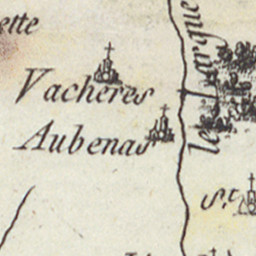 ette
Vacheres
Aubenas
le Largue
St.